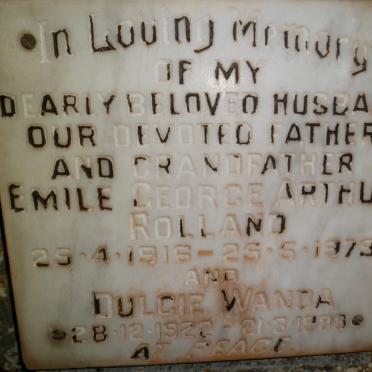 In Loving Memory
OF MY
DEARLY BELOVED HUSBA
OUR DEVOTED FATHER
AND GRANDFATHER
EMILE GEORGE ARTHU
ROLLAND
25·4·1916 - 25·5·1973
AND
DULCIE WANDA
28·12·1922 - 21·3·1998
AT PEACE